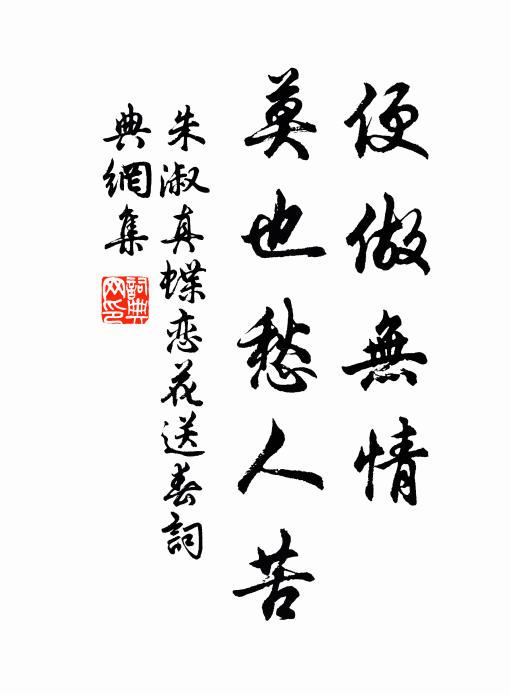 便做無情
莫也愁人苦
朱淑真蝶恋花送春詞
典網集
詞典
网印